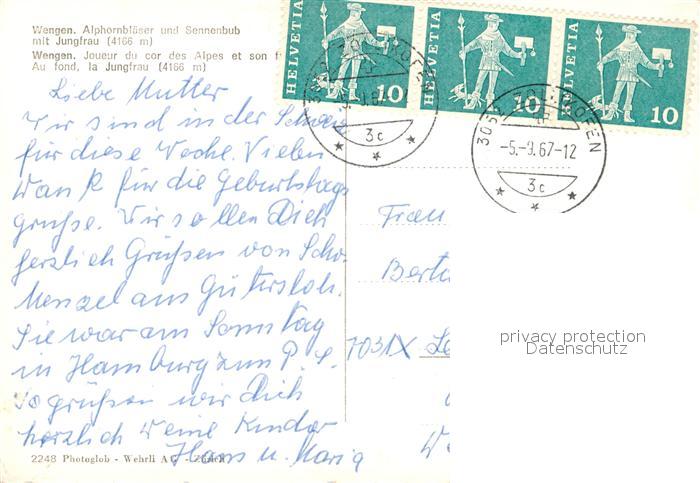 Wengen. Alphornbläser und Sennenbub
mit Jungfrau (4166 m)
Wengen. Joueur du cor des Alpes et son f
Au fond, la Jungfrau (4166 m)
HELVETIA 10
HELVETIA 10
HELVETIA 10
3c
3052 ZOLLIKOFEN
-5.-9.67-12
3c
Liebe Mutter
Wir sind in der Schweiz
für diese Woche. Vielen
Dank für die Geburtstags
grüße. Wir sollen Dich
herzlich Grüßen von
Menzel aus Gütersloh.
Sie war am Sonntag
in Hamburg zum P. S.
So grüßen wir Dich
herzlich Deine Kinder
Hans u. Maria
Frau
Berta
7031X
2248 Photoglob - Wehrli AG - Zürich
privacy protection
Datenschutz